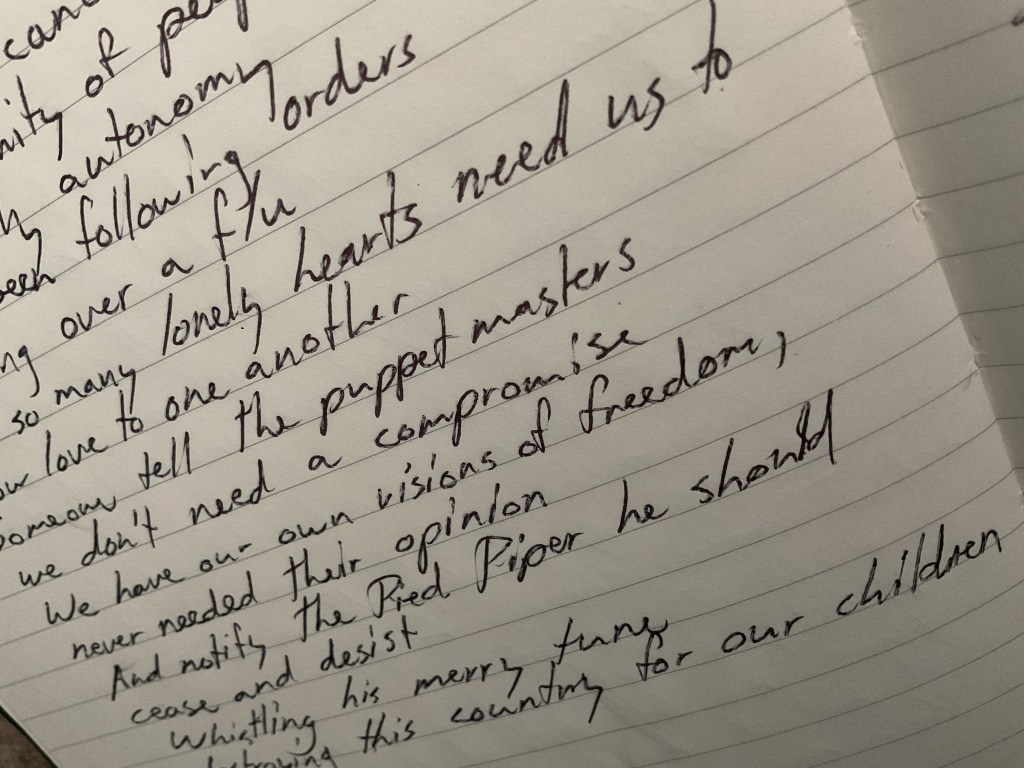 of
autonomy
following orders
over a flu
so many lonely hearts need us to
love to one another
tell the puppet masters
we don't need a compromise
We have our own visions of freedom,
never needed their opinion
And notify the Pied Piper he should
cease and desist
whistling his merry tune
this country for our children